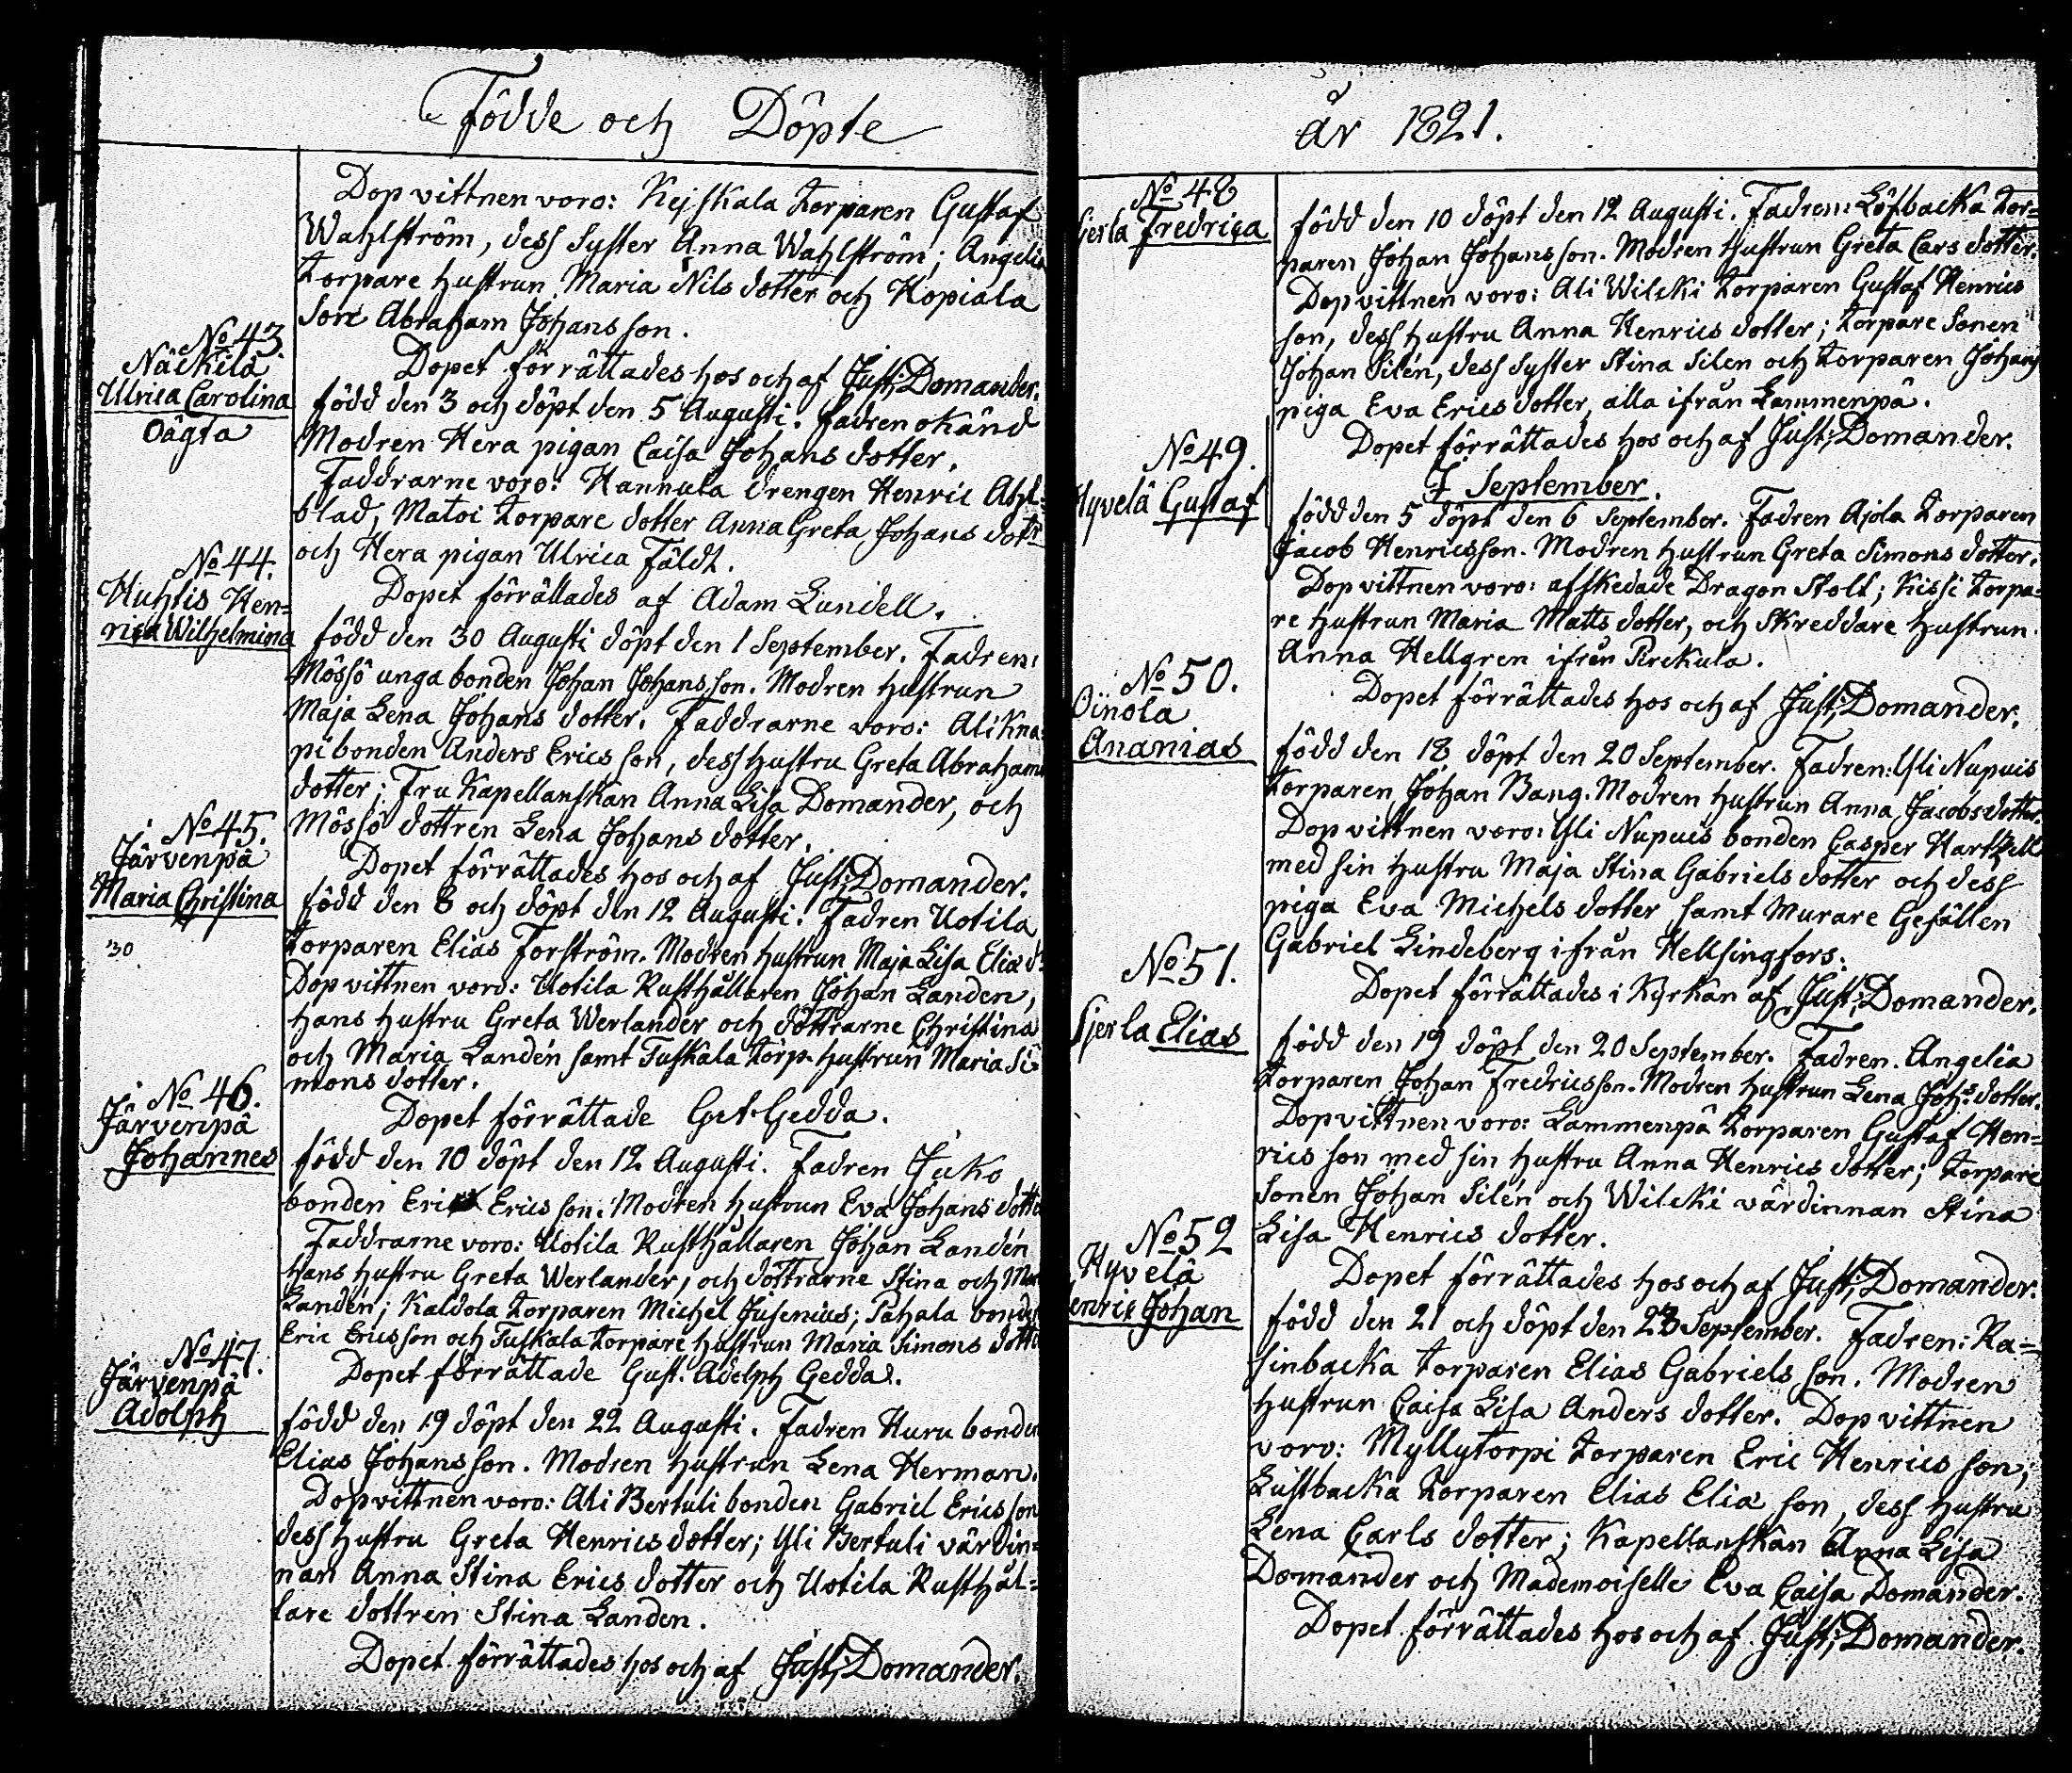 Födde och Döpte
Dopvittnen voro: Kejskala Torparen Gustaf
Wahlström, dess Syster Anna Wahlström; Angelia
Torpare hustrun Maria Nils dotter och Kopiala
Son Abraham Johansson.
Dopet förrättades hos och af Just: Domander.
No 43.
Näckilä
Ulrica Carolina
Oägta
född den 3 och döpt den 5 Augusti. fadren okänd
Modren Hera pigan Caisa Johans dotter.
Faddrarne voro: Hannula drengen Henric Ahl=
blad, Matoi Torpare dotter Anna Greta Johans dotr
och Hera pigan Ulrica Fäldt.
Dopet förrättades af Adam Lundell.
No 44.
Huhtis Hen=
rica Wilhelmina
född den 30 Augusti döpt den 1 September. Fadren:
Mössö unga bonden Johan Johansson. Modren hustrun
Maja Lena Johans dotter. Faddrarne voro: Ali Kna=
pi bonden Anders Ericsson, dess hustru Greta Abrahams
dotter; Fru Kapellanskan Anna Lisa Domander, och
Mössö dottren Lena Johans dotter.
Dopet förrättades hos och af Just: Domander.
No 45.
Järvenpä
Maria Christina
30
född den 8 och döpt den 12 Augusti. Fadren Uotila
Torparen Elias Forström. Modren hustrun Maja Lisa Elia d:
Dopvittnen voro: Uotila Rusthållaren Johan Landen,
hans hustru Greta Werlander och döttrarne Christina
och Maria Landén samt Tuskala Torp. hustrun Maria Si=
mons dotter.
Dopet förrättade Gst. Gedda.
No 46.
Järvenpä
Johannes
född den 10 döpt den 12 Augusti. Fadren Juko
bonden Eric Ericsson. Modren hustrun Eva Johans dotter
Faddrarne voro: Uotila Rusthållaren Johan Landén
hans hustru Greta Werlander, och döttrarne Stina och
Landén; Kaldola Torparen Michel Jusenius; Pahala bonden
Eric Ericsson och Tuskala Torpare hustrun Maria Simons dotter
Dopet förrättade Gust. Adolph Gedda.
No 47.
Järvenpä
Adolph
född den 19 döpt den 22 Augusti. Fadren Huru bonden
Elias Johansson. Modren hustrun Lena Herman.
Dopvittnen voro: Ali Bertuli bonden Gabriel Ericsson
dess hustru Greta Henrics dotter; Yli Bertuli värdin=
nan Anna Stina Erics dotter och Uotila Rusthål=
lare dottren Stina Landen.
Dopet förrättades hos och af Just: Domander.
år 1821.
No 48
Gerla Fredrica
född den 10 döpt den 12 Augusti. Fadren: Löfbacka Tor=
paren Johan Johansson. Modren hustrun Greta Cars dotter.
Dopvittnen voro: Ali Wilcki Torparen Gustaf Henrics
son, dess hustru Anna Henrics dotter; Torpare Sonen
Johan Silén, dess syster Stina Silen och Torparen Johans
piga Eva Erics dotter, alla ifrån Lammenpä.
Dopet förrättades hos och af Just: Domander.
I September.
No 49.
Hyvelä Gustaf
född den 5 döpt den 6 September. Fadren Ajola Torparen
Jacob Henricsson. Modren hustrun Greta Simons dotter.
Dopvittnen voro: afskedade Dragon Stolt; Kissi Torpa=
re hustrun Maria Matts dotter, och Skreddare hustrun
Anna Hellgren ifrån Pirckula.
Dopet förrättades hos och af Just: Domander.
No 50.
Oinola
Ananias
född den 18 döpt den 20 September. Fadren: Yli Nupuis
Torparen Johan Bang. Modren hustrun Anna Jacobs dotter.
Dopvittnen voro: Yli Nupuis bonden Casper Hartzell
med sin hustru Maja Stina Gabriels dotter och dess
piga Eva Michels dotter samt Murare Gesällen
Gabriel Lindeberg ifrån Hellsingfors.
Dopet förrättades i Kyrkan af Just: Domander.
No 51.
Sjerla Elias
född den 19 döpt den 20 September. Fadren. Angelia
Torparen Johan Fredricsson. Modren hustrun Lena Johs dotter.
Dopvittnen voro: Lammenpä Torparen Gustaf Hen=
rics son med sin hustru Anna Henrics dotter; Torpare
Sonen Johan Silén och Wilcki värdinnan Stina
Lisa Henrics dotter.
Dopet förrättades hos och af Just: Domander.
No 52
Hyvelä
enric Johan
född den 21 och döpt den 23 September. Fadren: Ra=
sinbacka Torparen Elias Gabriels son. Modren
hustrun Caisa Lisa Anders dotter. Dopvittnen
voro: Myllytorpi Torparen Eric Henrics son;
Lustbacka Torparen Elias Elia son, dess hustru
Lena Carls dotter; Kapellanskan Anna Lisa
Domander och Mademoiselle Eva Caisa Domander.
Dopet förrättades hos och af Just: Domander.